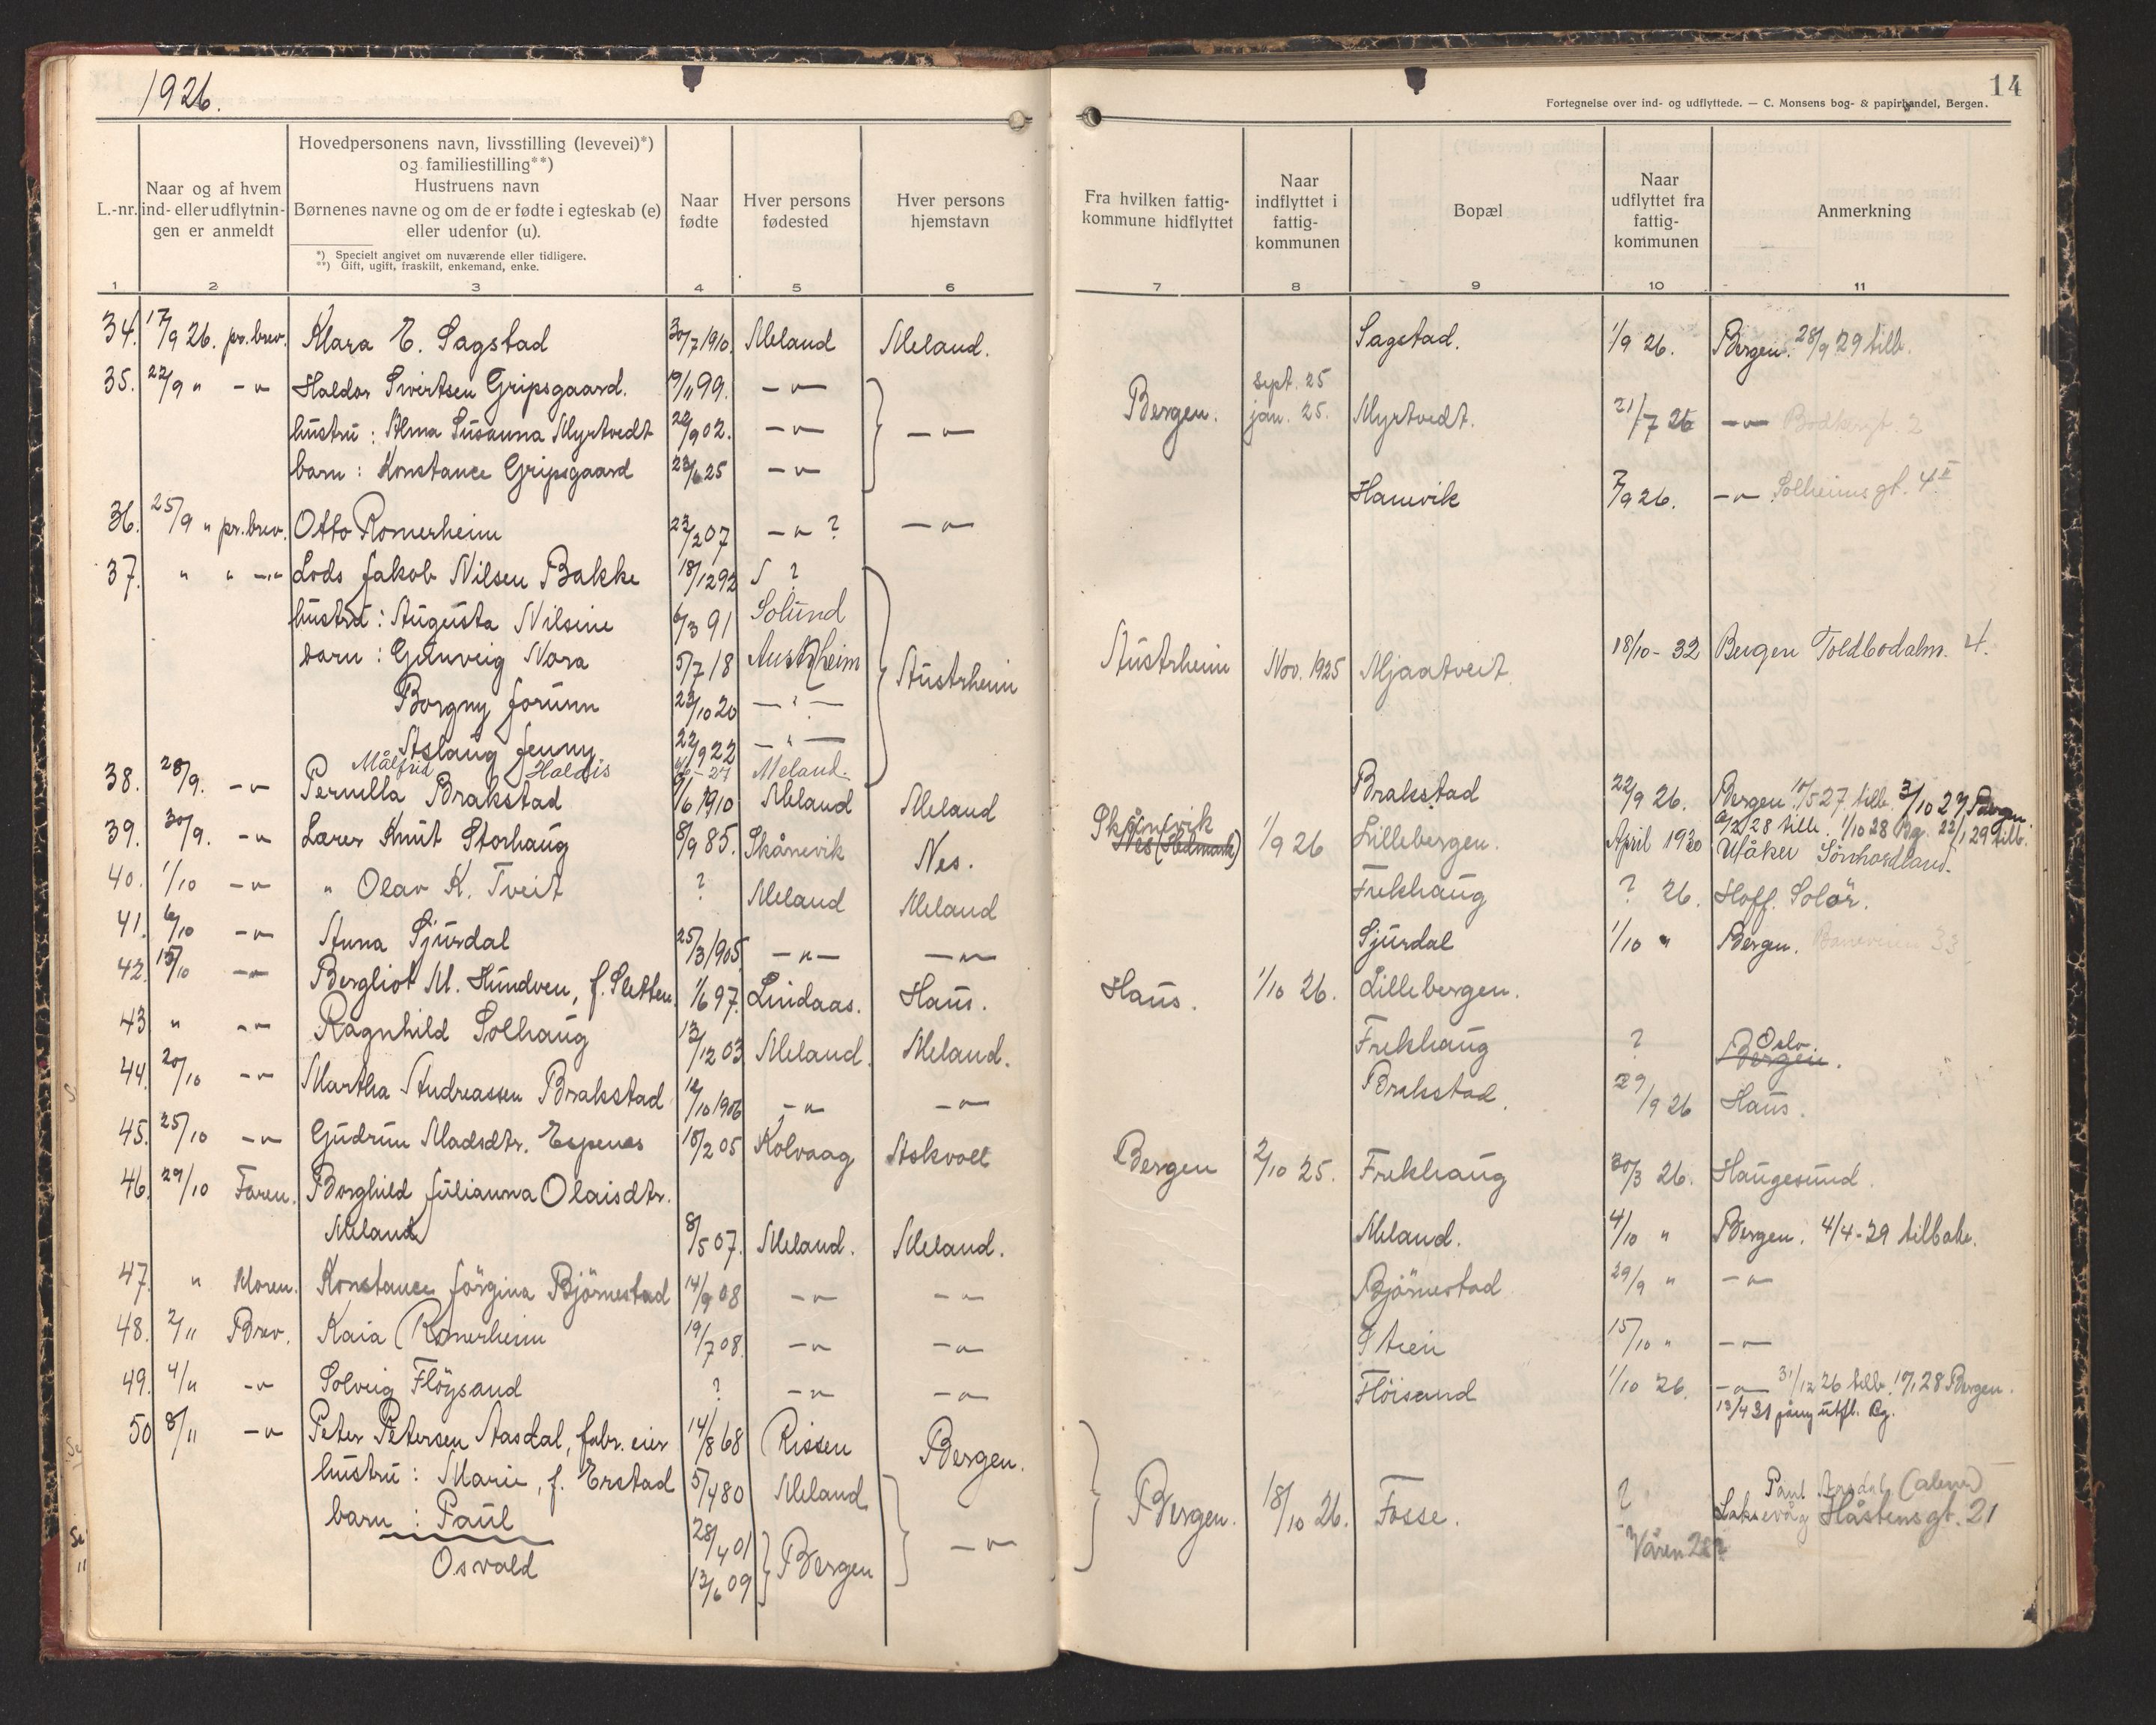 1926.
14
Fortegnelse over ind- og udflyttede. — C. Monsens bog- & papirhandel, Bergen.
L.-nr.
Naar og af hvem ind- eller udflytnin-gen er anmeldt
Hovedpersonens navn, livsstilling (levevei)*)
og familiestilling**)
Hustruens navn
Børnenes navne og om de er fødte i egteskab (e)
eller udenfor (u).
*) Specielt angivet om nuværende eller tidligere.
**) Gift, ugift, fraskilt, enkemand, enke.
Naar fødte
Hver persons fødested
Hver persons hjemstavn
Fra hvilken fattig-kommune hidflyttet
Naar indflyttet i fattig-kommunen
Bopæl
Naar udflyttet fra fattig-kommunen
Anmerkning
1 2 3 4 5 6 7 8 9 10 11
34. 17/9 26. pr. brev. Klara E. Sagstad 30/7 1910. Meland Meland. Sagstad. 1/9 26. Bergen. 28/9 29 tilb.
35. 22/9 " -"- Haldor Sivertsen Gripsgaard. 19/11 99. -"-
sept. 25
hustru: Alma Susanna Myrtvedt 22/9 02. -"- -"- Bergen. jan. 25. Myrtvedt. 21/7 26 -"- Bødkergt. 2
barn: Konstance Gripsgaard 23/6 25 -"-
36. 25/9 " pr. brev. Otto Romerheim 23/2 07 -"- ? -"- Hanevik 7/9 26. -"- Solheimsgt. 4 II
37. " " -"- Lods Jakob Nilsen Bakke 18/12 92 ?
hustru: Augusta Nilsine 6/3 91 Solund
barn: Gunveig Nora 5/7 18 Austrheim Austrheim Austrheim Nov. 1925 Mjaatveit 18/10 - 32 Bergen Toldbodalm. 4.
Borgny Jorunn 23/10 20 -"-
Aslaug Jenny 22/9 22 -"-
Målfrid Haldis 27 Meland.
38. 28/9. -"- Pernilla Brakstad 9/6 1910 Meland Meland Brakstad 22/9 26. Bergen 15/5 27. tilb. 3/10 27 Bergen
2/2 28 tilb. 1/10 28 Bg. 22/1 29 tilb.
39. 30/9. -"- Lærer Knut Storhaug 8/9 85. Skånevik Nes. Skånevik Nes (Hedmark) 1/9 26 Lillebergen. April 1930 Ufåker Sönhordland.
40. 1/10 -"- " Olav K. Tveit ? Meland Meland Frekhaug ? 26. Hoff. Solör.
41. 6/10 -"- Anna Sjursdal 25/3 1905 -"- -"- Sjursdal 1/10 " Bergen. 33
42. 15/10 -"- Bergliot M. Hundven, f. Sletten. 1/6 97. Lindaas. Haus. Haus. 1/10 26. Lillebergen.
43 " -"- Ragnhild Solhaug 13/12 03 Meland. Meland. Frekhaug ? Bergen. Oslo.
44. 20/10 -"- Martha Andreassen Brakstad 12/10 1906 -"- -"- Brakstad. 29/9 26 Haus.
45. 25/10 -"- Gudrun Madsdtr. Espenes 18/2 05 Kolvaag Askvoll Bergen 2/10 25. Frekhaug 30/3 26. Haugesund.
46. 29/10 Faren. Borghild Julianna Olaisdtr.
Meland 8/5 07. Meland. Meland. Meland. 4/10 " Bergen. 4/4-29 tilbake.
47. " Moren. Konstance Jörgina Björnestad 14/9 08 -"- -"- Björnestad 29/9 " -"-
48. 2/11 Brev. Kaia Romerheim 19/7 08. -"- -"- 15/10 " -"-
49. 4/11 -"- Solveig Flöysand ? -"- -"- Flöisand 1/10 26. -"- 31/12 26 tilb. 28 Bergen.
13/4 31 utfl. Bg.
50 8/11 -"- Peter Petersen Aasdal, fabr. eier 14/8 68 Rissen Bergen.
hustru: Marie, f. Erstad 5/4 80 Meland Bergen. 18/10 26. Fosse. ? Paul Aasdal (alene)
barn: Paul 28/4 01 Bergen -"- Laksevåg Håstensgt. 21
Osvald 13/6 09 Våren 28?